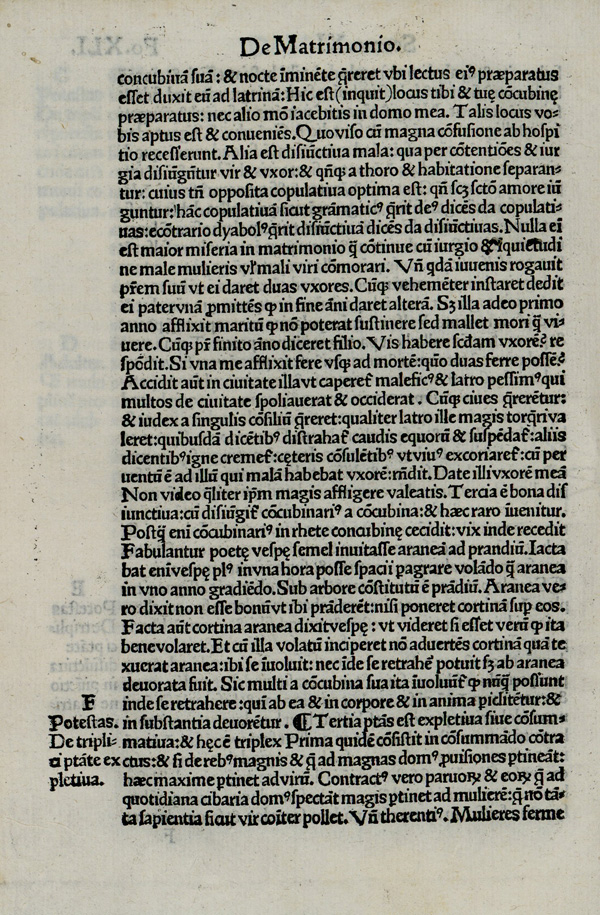 De Matrimonio.
concubinā suā: & nocte īminēte q̄reret vbi lectus ei⁹ præparatus
esset duxit eū ad latrinā: Hic est (inquit) locus tibi & tuę cōcubinę
præparatus: nec alio mō iacebitis in domo mea. Talis locus vo-
bis aptus est & conueniēs. Quo viso cū magna cōfusione ab hospi
tio recesserunt. Alia est disiūctiua mala: qua per cōtentiōes & iur
gia disiūgūtur vir & vxor: & qn̄q; a thoro & habitatione separan-
tur: cuius tn̄ opposita copulatiua optima est: qn̄ scȝ sctō amore iū
guntur: hāc copulatiuā sicut grāmatic⁹ q̄rit de⁹ dicēs da copulati-
uas: econtrario dyabol⁹ q̄rit disiūctiuā dicēs da disiūctiuas. Nulla ei
est maior miseria in matrimonio q̄ cōtinue cū iurgio & iquietudi
ne male mulieris vl' mali viri cōmorari. Vn̄ qdā iuuenis rogauit
p̄rem suū vt ei daret duas vxores. Cūq; vehemēter instaret dedit
ei patervnā ꝓmittēs ꝙ in fine āni daret alterā. Sȝ illa adeo primo
anno afflixit maritū ꝙ nō poterat sustinere sed mallet mori q̄ vi-
uere. Cūq; pr̄ finito āno diceret filio. Vis habere scdam vxorē? re
spōdit. Si vna me afflixit fere vsq; ad mortē: quō duas ferre possē?
Accidit aūt in ciuitate illa vt caperet̄ malefic⁹ & latro pessim⁹ qui
multos de ciuitate spoliauerat & occiderat. Cūq; ciues q̄rerētur:
& iudex a singulis cōsiliū q̄reret: qualiter latro ille magis torq̄ri va
leret: quibusdā dicētib⁹ distrahat̄ caudis equorū & suspēdat̄: aliis
dicentib⁹ igne cremet̄: cęteris cōsulētib⁹ vt viu⁹ excoriaret̄: cū per
uentū ē ad illū qui malā habebat vxorē: rn̄dit. Date illi vxorē meā
Non video q̄liter ip̄m magis affligere valeatis. Tercia ē bona dis
iunctiua: cū disiūgit̄ cōcubinari⁹ a cōcubina: & hæc raro īuenitur.
Postq̄ enī cōcubinari⁹ in rhete concubinę cecidit: vix inde recedit
Fabulantur poetę vespę semel inuitasse araneā ad prandiū. Iacta
bat enī vespę pl⁹ in vna hora posse spacii ꝑagrare volādo q̄ aranea
in vno anno gradiēdo. Sub arbore cōstitutū ē prādiū. Aranea ve-
ro dixit non esse bonū vt ibi prāderēt: nisi poneret cortinā suꝑ eos.
Facta aūt cortina aranea dixit vespę: vt videret si esset verū ꝙ ita
beneuolaret. Et cū illa volatū inciperet nō aduertēs cortinā quā te
xuerat aranea: ibi se īuoluit: nec īde se retrahe' potuit sȝ ab aranea
deuorata fuit. Sic multi a cōcubina sua ita īuoluūt̄ ꝙ nūq̄ possunt
F
inde se retrahere: qui ab ea & in corpore & in anima piclitētur: &
Potestas.
in substantia deuorētur. ¶ Tertia ptās est expletiua siue cōsum-
De tripli-
matiua: & hęc ē triplex Prima quidē cōsistit in cōsummādo cōtra
ci ptāte ex
ctus: & si de reb⁹ magnis & q̄ ad magnas dom⁹ ꝓuisiones ptineāt:
pletiua.
hæc maxime ptinet ad virū. Contract⁹ vero paruoꝝ & eoꝝ q̄ ad
quotidiana cibaria dom⁹ spectāt magis ptinet ad mulierē: q̄ nō tā-
ta sapientia sicut vir cōiter pollet. Vn̄ therenti⁹. Mulieres ferme